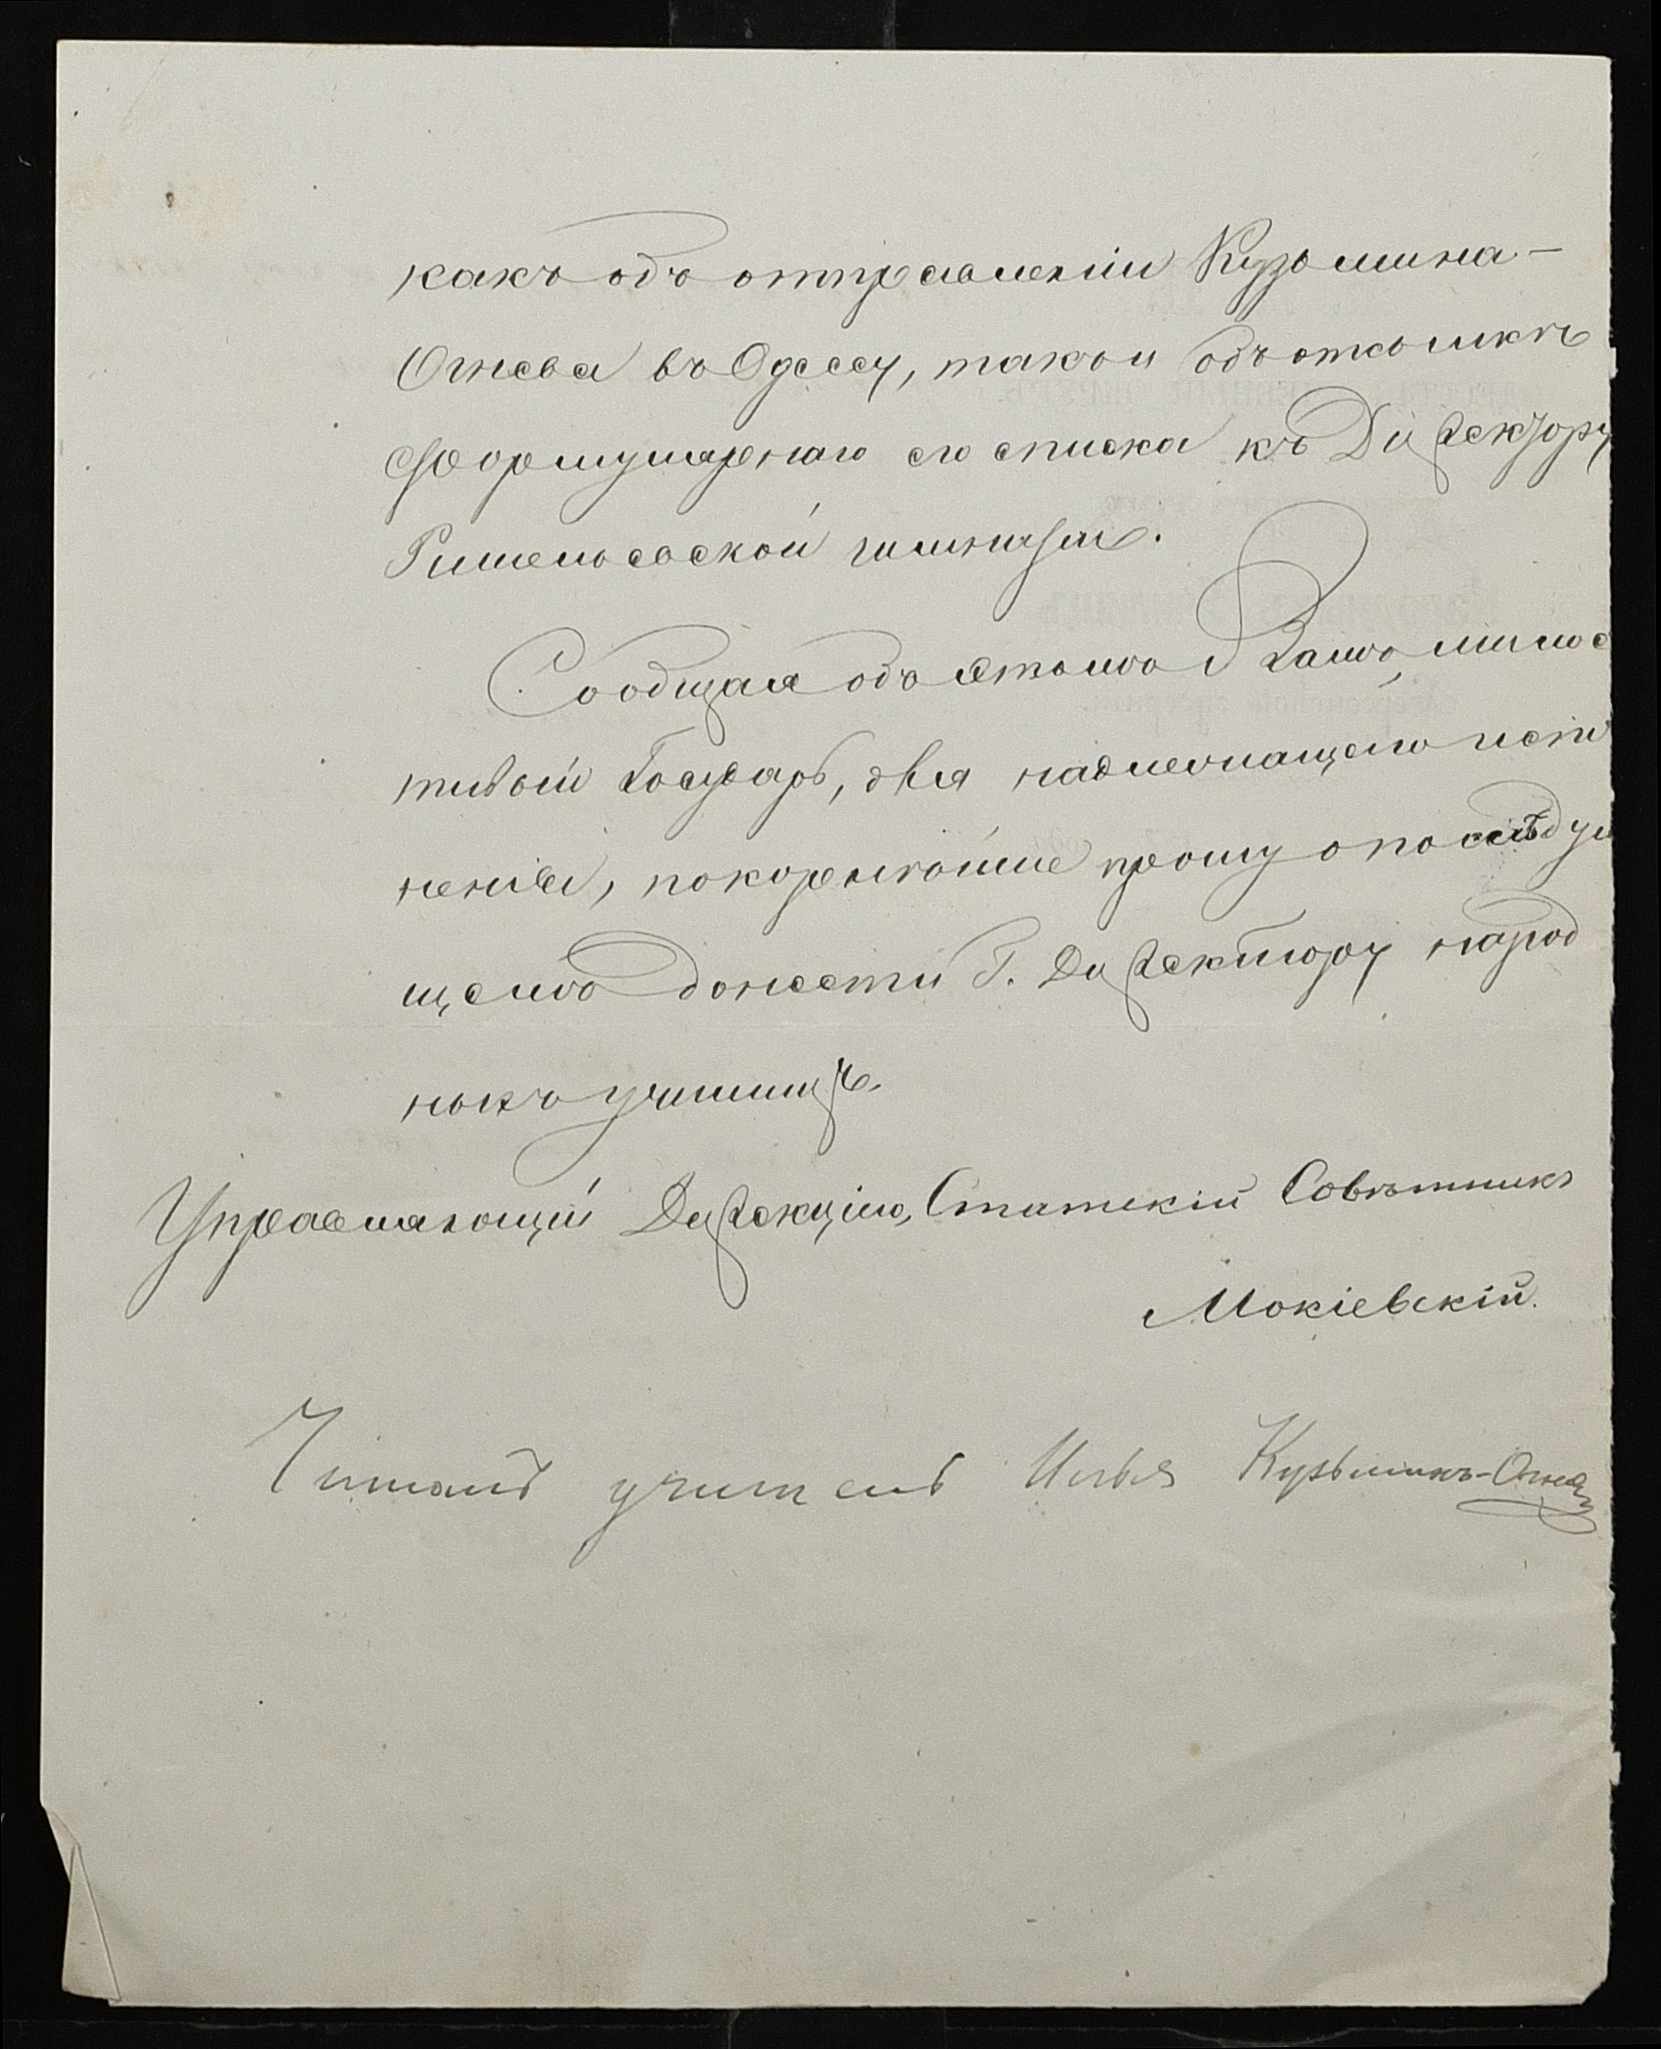 какъ объ отправленіи Кузьмина-
Огнева въ Одессу, такъ и объ отсылкѣ
формулярнаго его списка къ Директору
Ришельевской гимназіи.
Сообщая объ этомъ Вамъ, милос
тивый Государь, для надлежащаго испол
ненія, покорнѣйше прошу о послѣдую
щемъ донести Г. Директору народ
ныхъ училищъ.
Управляющій Дирекціею, Статскій Совѣтникъ
Мокіевскій.
Читалъ учитель Илья Кузьминъ-Огнев